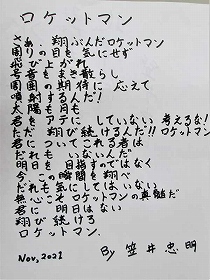 ロケットマン
さあ、翔ぶんだロケットマン
周りの目を気にせず
飛び上がれ
号音をまき散らし
周囲の期待に 応えて
噴射するんだ!
太陽も月も
君をアテに していない 考えるな!
ただ 翔び続けるんだ!!ロケットマン
君についてこれる者は
だれも いないんだ
明日を目指すのではなく
今、この瞬間を翔べ
だれも気にしてはいない
無心こそロケットマンの真髄だ
君に 明日はない
翔び続けろ
ロケットマン.
Nov, 2021
By 笠井忠明